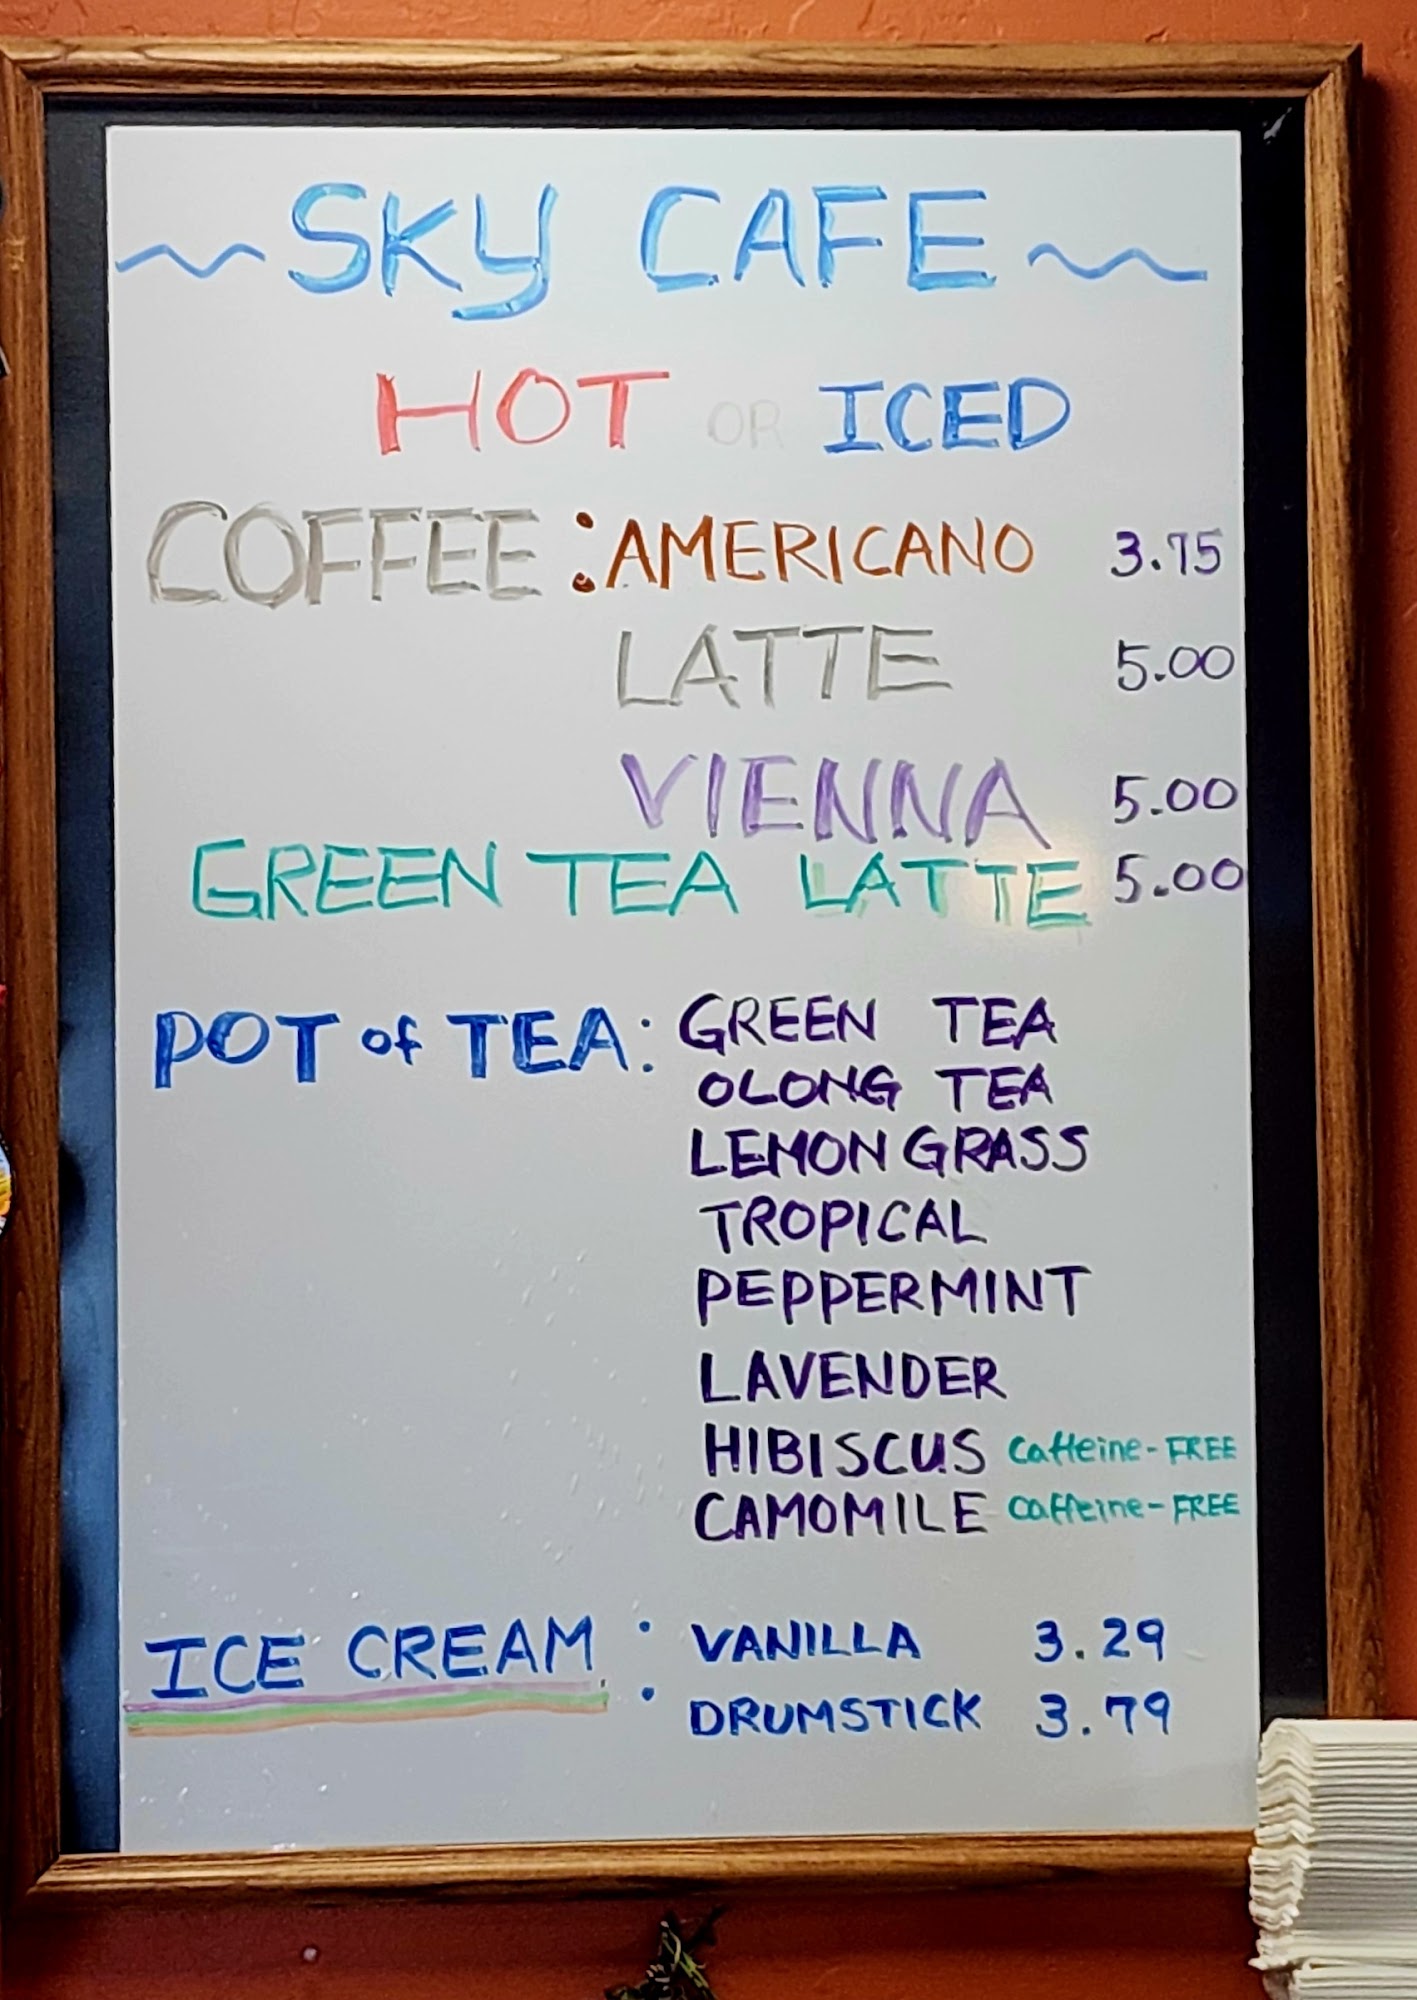 ~SKY CAFE~
HOT OR ICED
COFFEE : AMERICANO 3.75
LATTE 5.00
VIENNA 5.00
GREEN TEA LATTE 5.00
POT of TEA: GREEN TEA
OLONG TEA
LEMON GRASS
TROPICAL
PEPPERMINT
LAVENDER
HIBISCUS Caffeine-FREE
CAMOMILE Caffeine-FREE
ICE CREAM : VANILLA 3.29
DRUMSTICK 3.79